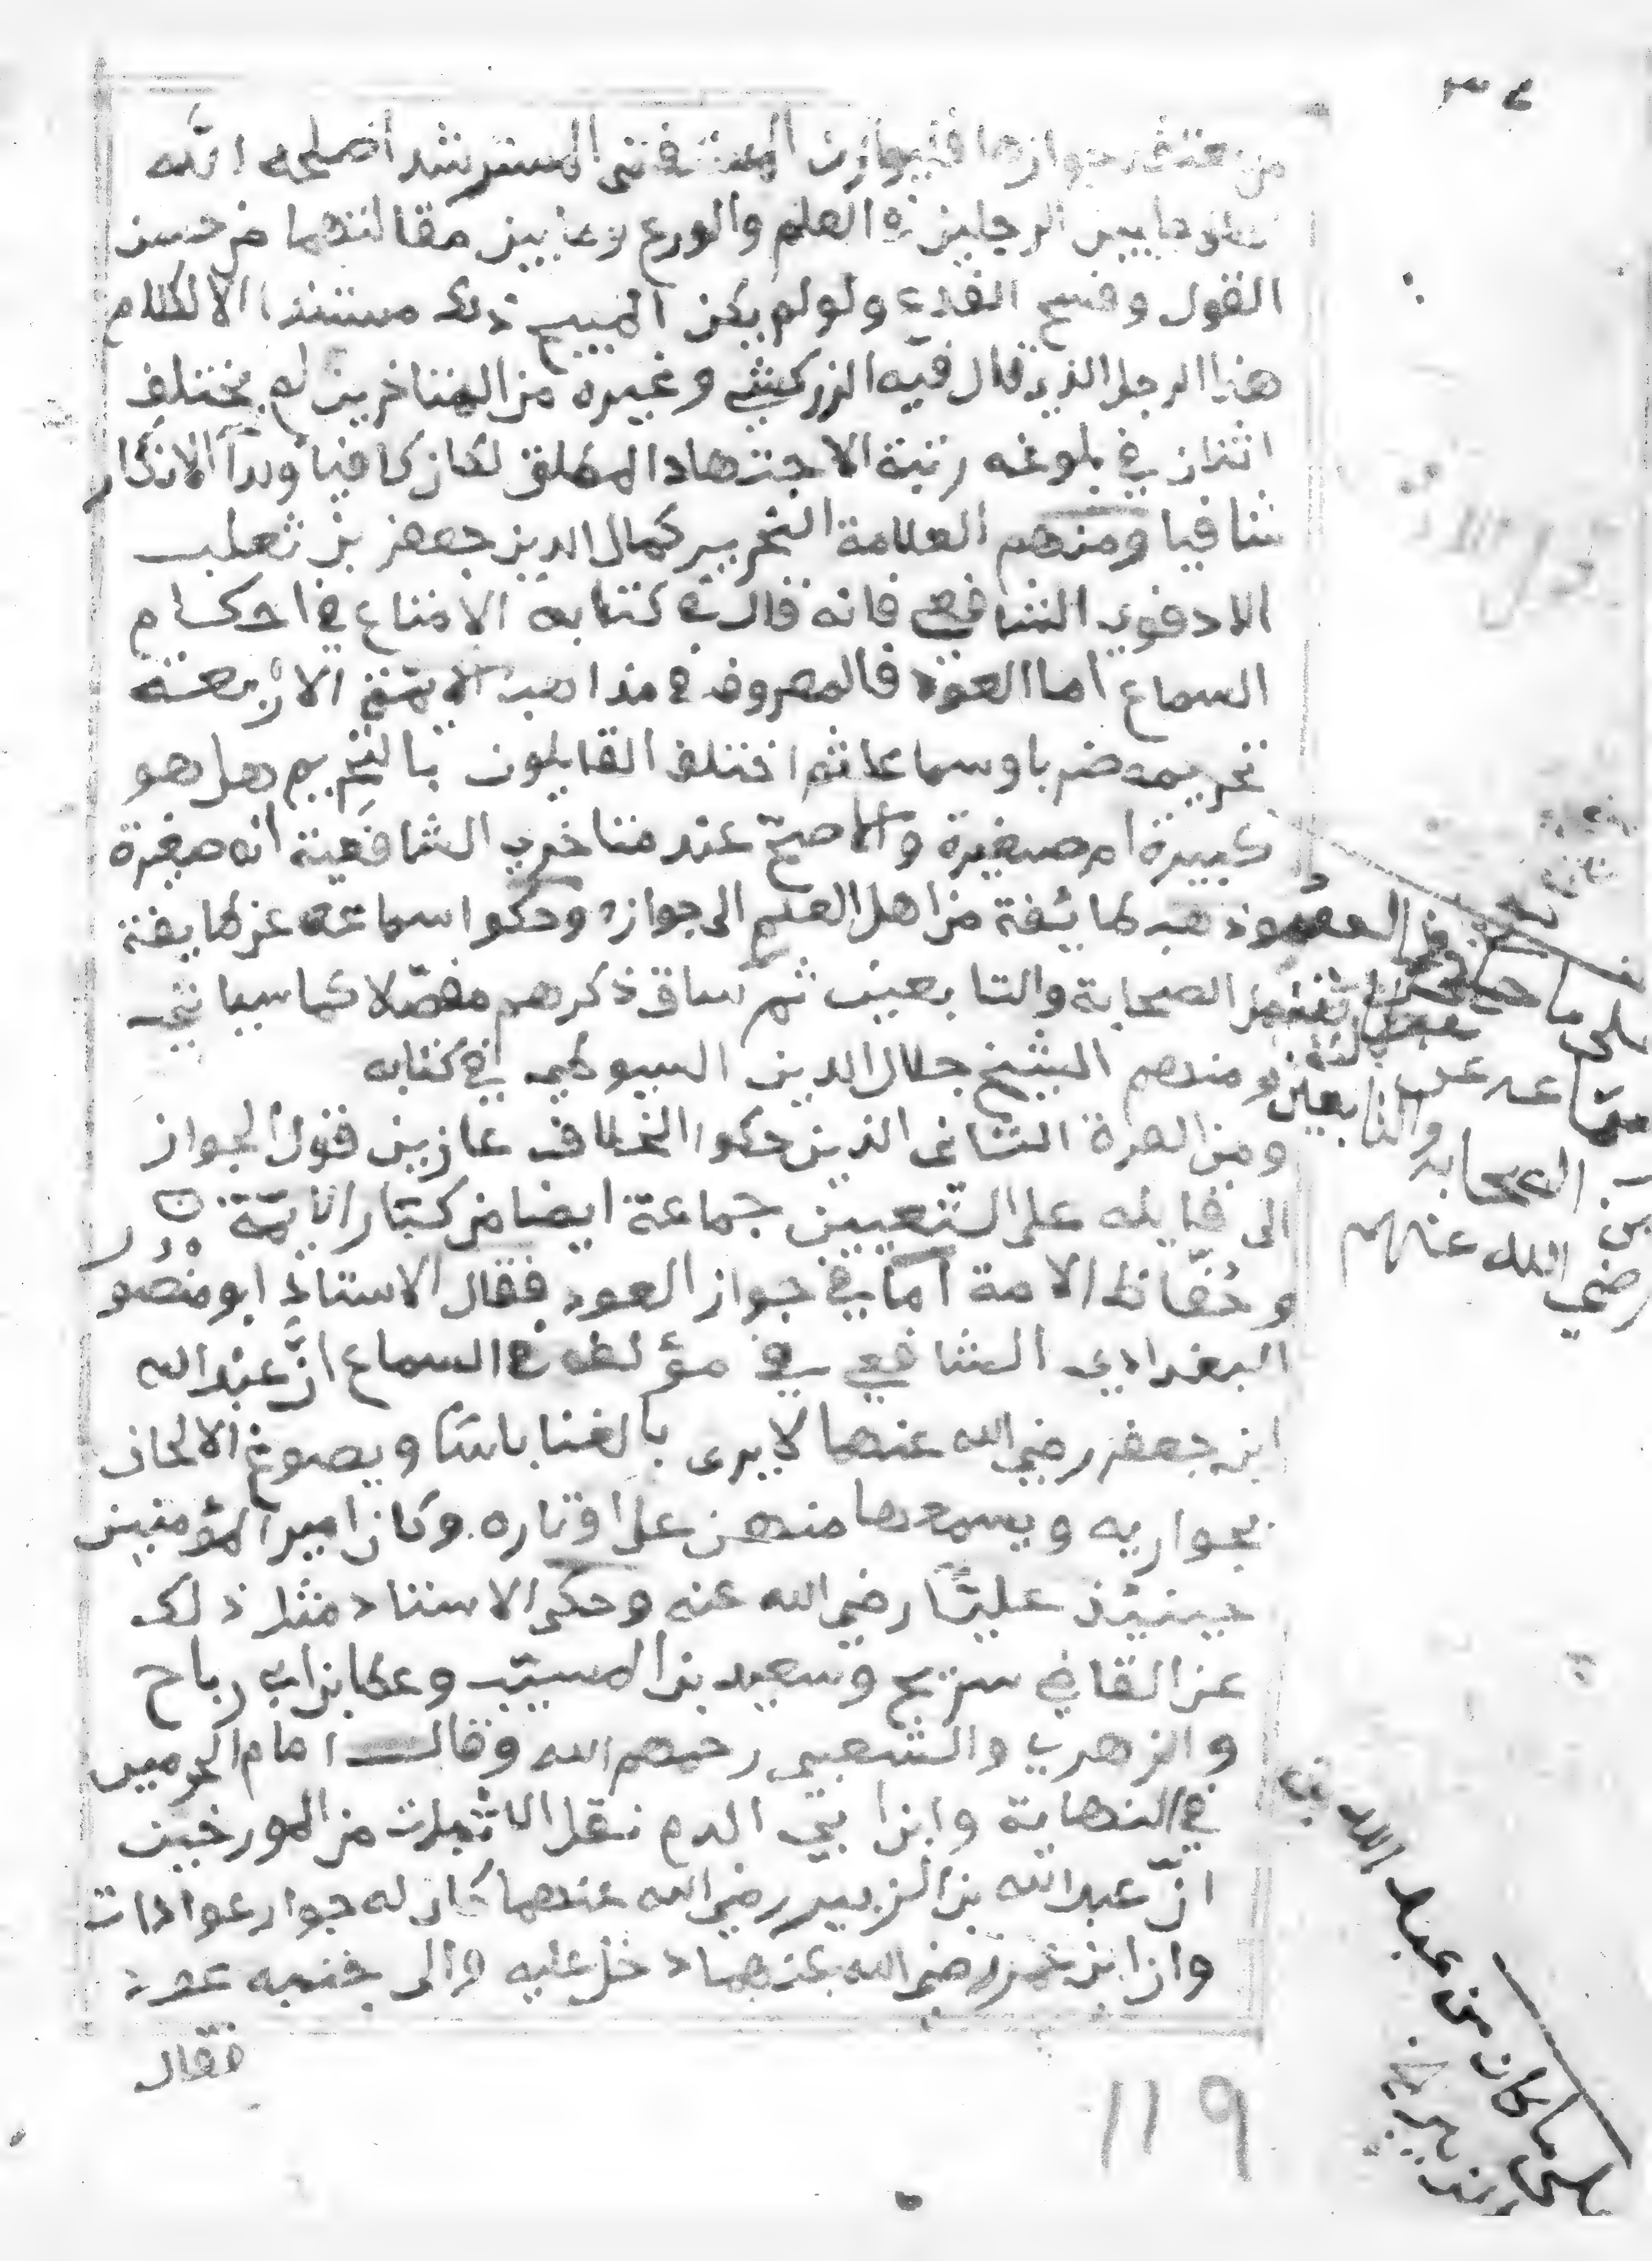 من يعتقد جوازها فليوازن المستفتي المسترشد اصلحه الله
ما بين الرجلين في العلم والورع وما بين مقالتهما من حسن
القول وقبح القدع ولو لم يكن المبيح ذلك مستندا الا لكلام
هذا الرجل الذي قال فيه الزركشي وغيره من المتاخرين لم يختلف
اثنان في بلوغه رتبة الاجتهاد المطلق لكان كافيا ولدآ الانكار
شافيا ومنهم العلامة النحرير كمال الدين جعفر بن ثعلب
الادفوي الشافعي فانه قال في كتابه الامتاع في احكام
السماع اما العود فالمعروف في مذاهب الايمة الاربعة
تحريمه ضربا وسماعا ثم اختلف القايلون بالتحريم هل هو
كبيرة ام صغيرة والاصح عند متاخري الشافعية انه صغيرة
وذهب طائفة من اهل العلم الى جوازه وحكوا سماعه عن طايفة
من الصحابة والتابعين ثم ساق ذكرهم مفصلا كما سياتي
ومنهم الشيخ جلال الدين السيوطي في كتابه
ومن المرة الثانى الذين حكوا الخلاف عازين قول الجواز
الى قايله على التعيين جماعة ايضا من كبار الايمة
وحفاظ الامة اما في جواز العود فقال الاستاذ ابو منصور
البغدادي الشافعي في مؤلفه في السماع ان عبد الله
ابن جعفر رضي الله عنهما لا يرى بالغنا باسا ويصوغ الالحان
بجواريه ويسمعها منهن على اوتاره وكان امير المؤمنين
حينئذ عليا رضي الله عنه وحكى الاستاد مثل ذلك
عن القاضي سريح وسعيد بن المسيب وعطا بن ابي رباح
والزهري والشعبي رحمهم الله وقال امام الحرمين
في النهاية وابن ابي الدم نقل الاثبات من المورخين
ان عبد الله بن الزبير رضي الله عنهما كان له جوار عوادات
وان ابن عمر رضي الله عنهما دخل عليه والى جنبه عود
فقال
119
على ما
عن
الصحابه والتابعين
رضي الله عنهم
على ما كان من عبد الله بن